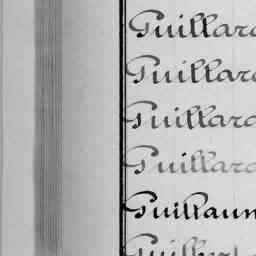 Guillard
Guillard
Guillard
Guillard
Guillaum
Guilbert